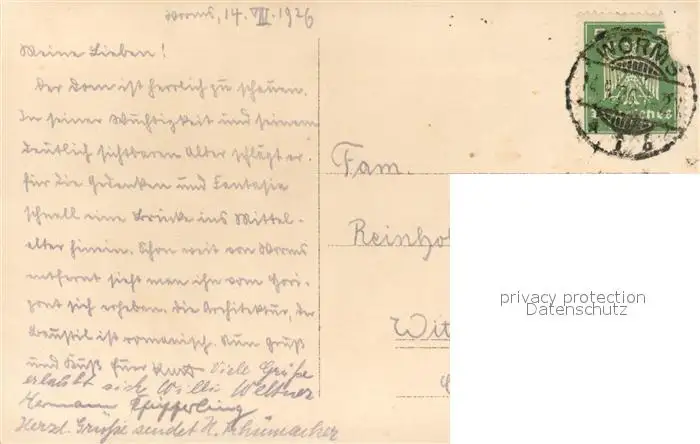 Worms, 14. VIII. 1926
Meine Lieben!
Der Dom ist herrlich zu schauen.
In seiner Wuchtigkeit und seinem
deutlich sichtbaren Alter schlägt er
für die Gedanken und Fantasie
schnell eine Brücke ins Mittel-
alter hinein. Schon weit von Worms
entfernt sieht man ihn vom Hori-
zont sich erheben. Die Architektur, der
Baustil ist romanisch. Nun Gruß
und Kuß Euer Kurt Viele Grüße
erlaubt sich Willi Weltner
Hermann
Herzl. Grüße sendet H. Schumacher
WORMS
Fam.
Reinhol
Wit
privacy protection
Datenschutz